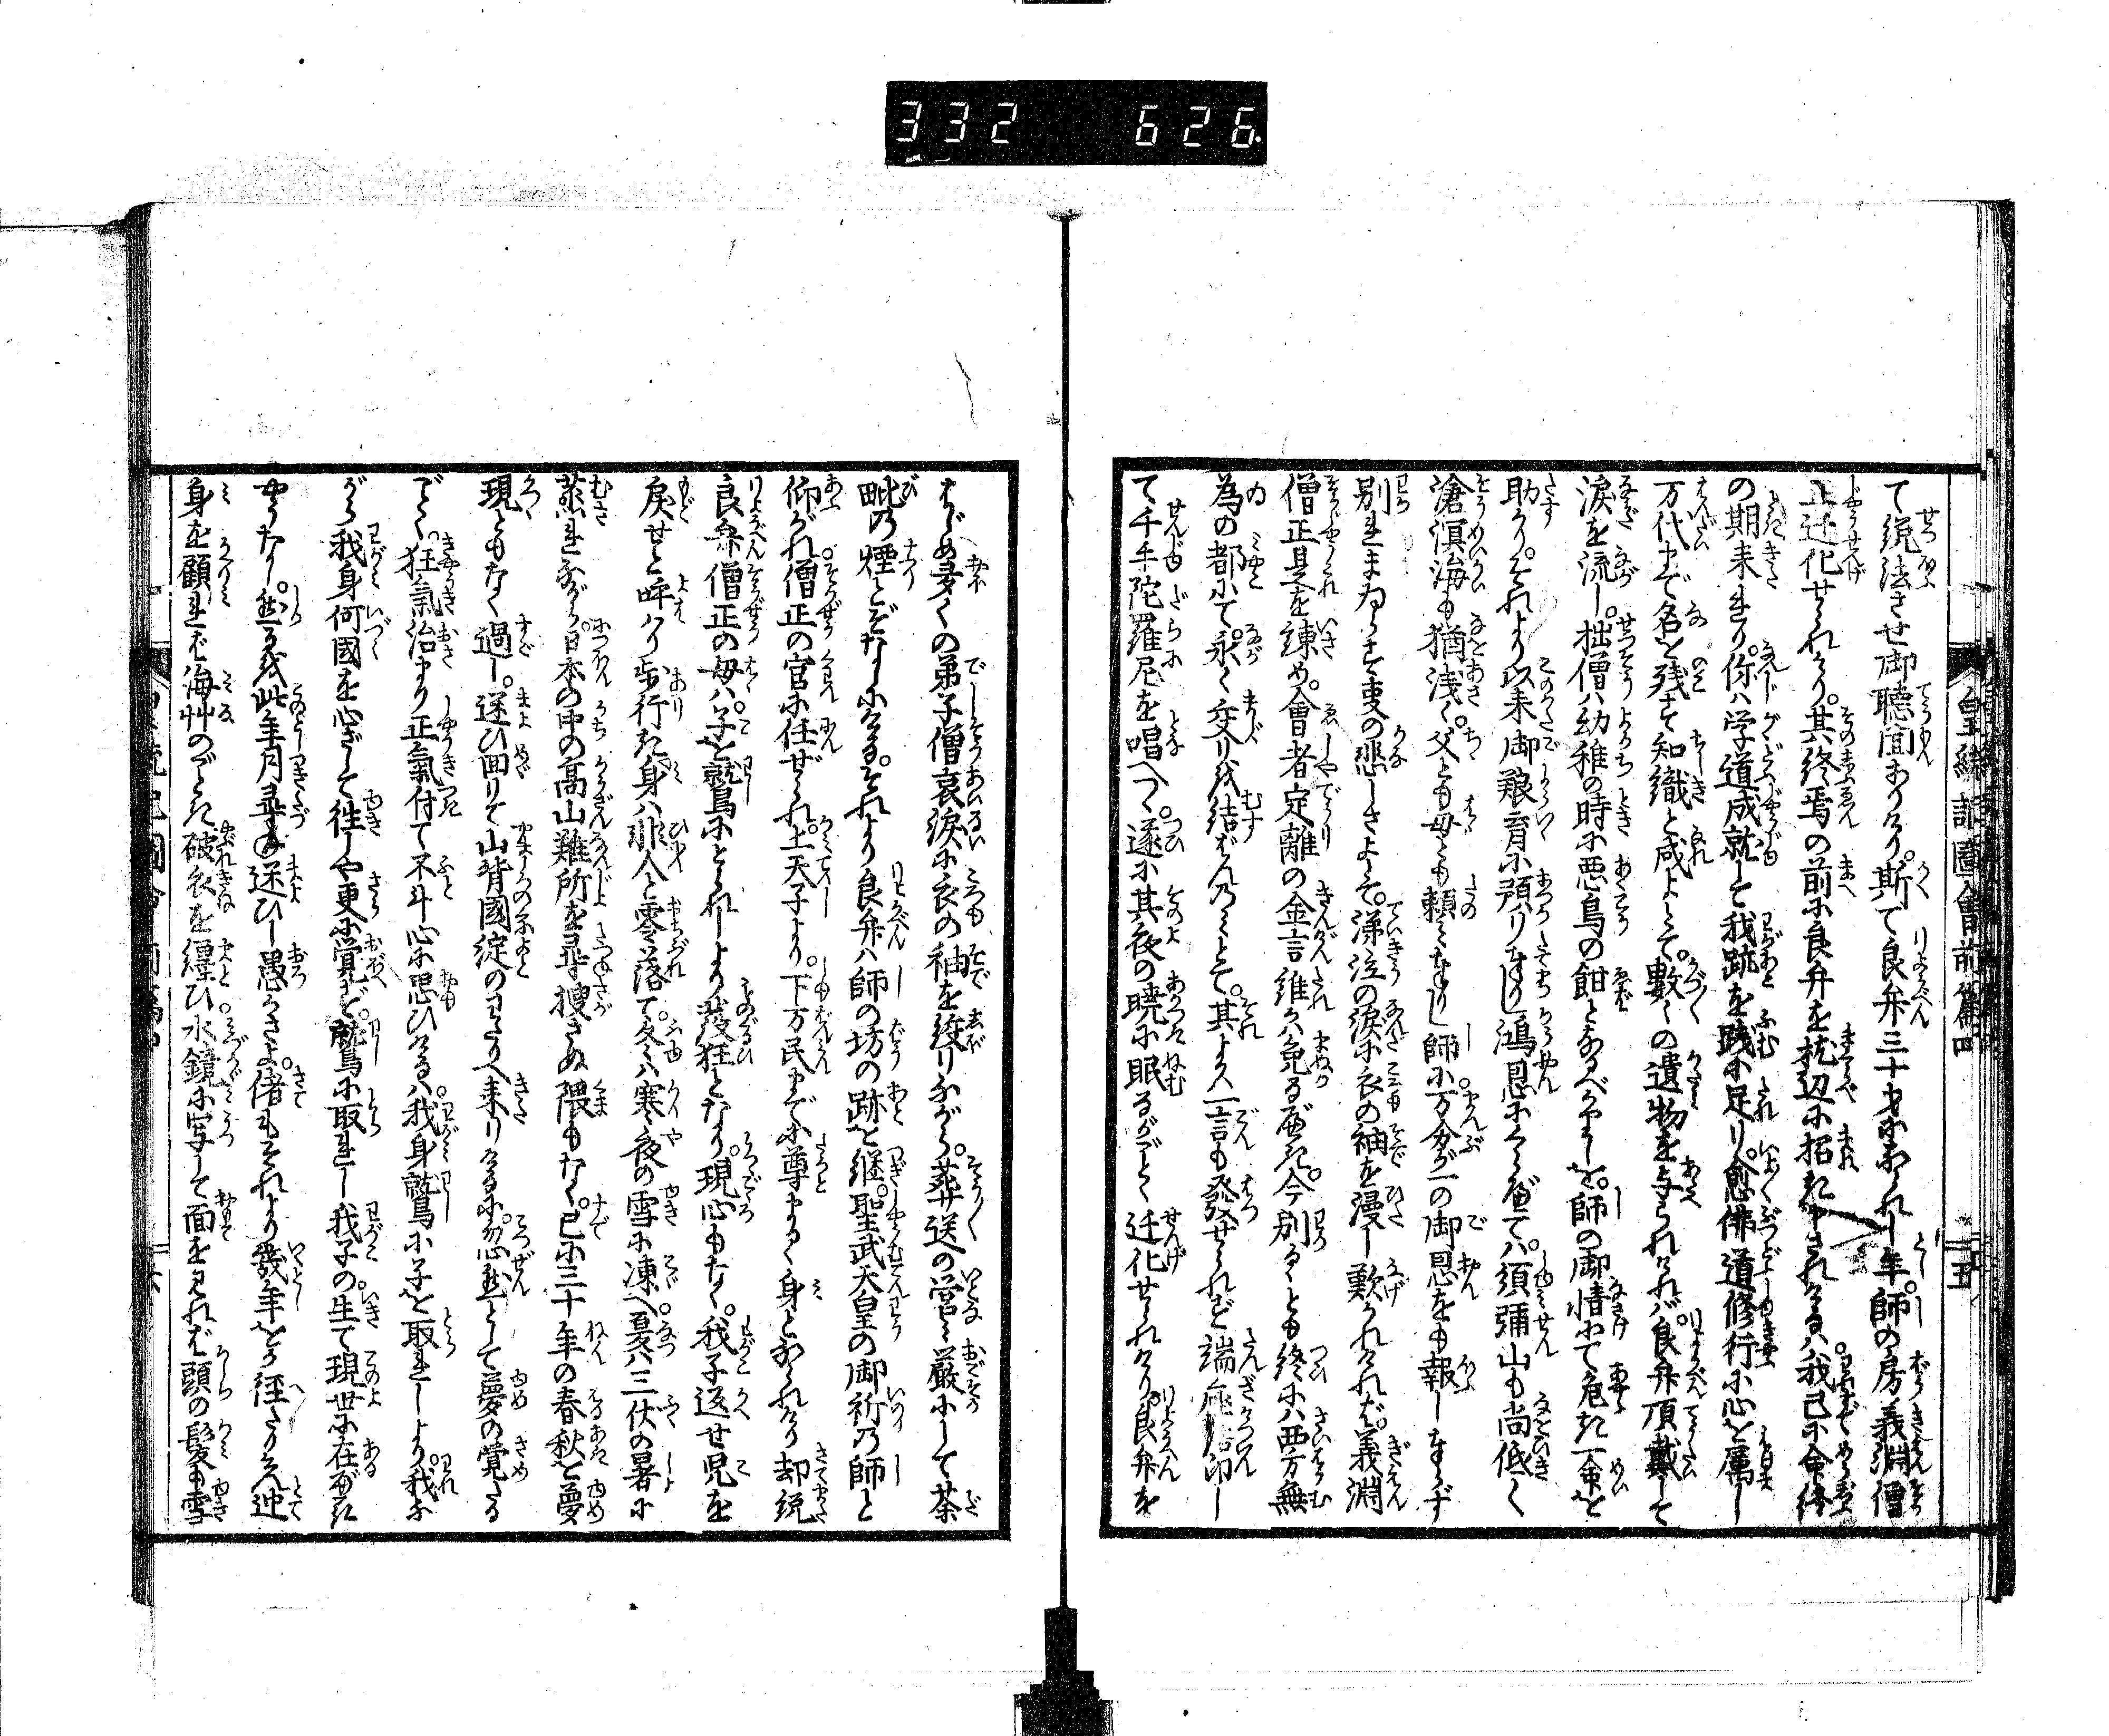 332 626
皇統記圖會前篇四 十五
て説法させ御聴聞ありけり。斯て良弁三十才にあられし年。師の房義淵僧
正迁化せられけり。其終焉の前に良弁を枕辺に招き申されけるハ。我已に命終
の期来れり。你ハ学道成就して我跡を践に足り。愈佛道修行に心を属し
万代まで名を残せる知識と成よとて。数〻の遺物を与られけれバ。良弁頂戴して
涙を流し。拙僧ハ幼稚の時に悪鳥の餌となるべかりしを。師の御情にて危き一命を
助かり。それより以来御養育に預ハりまゐらせし鴻恩にくらべてハ。須彌山も尚低く
滄溟海も猶浅く。父とも母とも頼ミまゐらせし師に。万分が一の御恩をも報しまゐらせず
別れまゐらする事の悲しさよとて。涕泣の涙に衣の袖を漫し歎かれけれバ。義淵
僧正是を諫め。會者定離の金言誰かハ免るべき。今別るゝとも終にハ西方無
為の都にて。永く交りを結ばんのミとて。其よりハ一言も發せられず端座結印し
て千手陀羅尼を唱へつゝ。遂に其夜の暁に眠るがごとく迁化せられけり。良弁を
はじめ多くの弟子僧哀涙に衣の袖を絞りながら。葬送の営ミ厳にして荼
毗の煙とぞなしにける。それより良弁ハ師の坊の跡を継。聖武天皇の御祈の師と
仰がれ。僧正の官に任ぜられ。上天子より。下万民まで尊まるゝ身とあられけり却説
良弁僧正の母ハ。子を鷲にとられしより發狂となり。現心もなく。我子返せ児を
戻せと呼ハり歩行き。身ハ非人と零落て。冬ハ寒夜の雪に凍へ。夏ハ三伏の暑に
蒸れながら。日本の中の高山難所を尋捜さぬ隈もなく。已に三十年の春秋を夢
現ともなく過し。迷ひ回りて山背國淀のわたりへ来りけるに。忽然として夢の覚たる
ごとく。狂氣治まり正氣付て不斗心に思ひけるハ。我身鷲に子を取れしより。我な
がら我身何國を心ざして往しや更に覚ず。鷲に取れし我子の生て現世に在べき
やうなし。然るを此年月尋ね迷ひし愚かさよ。偖もそれより幾年をか経たりけん迚
身を顧れバ海艸のごとき破衣を纏ひ。水鏡に写して面を見れバ頭の髪も雪